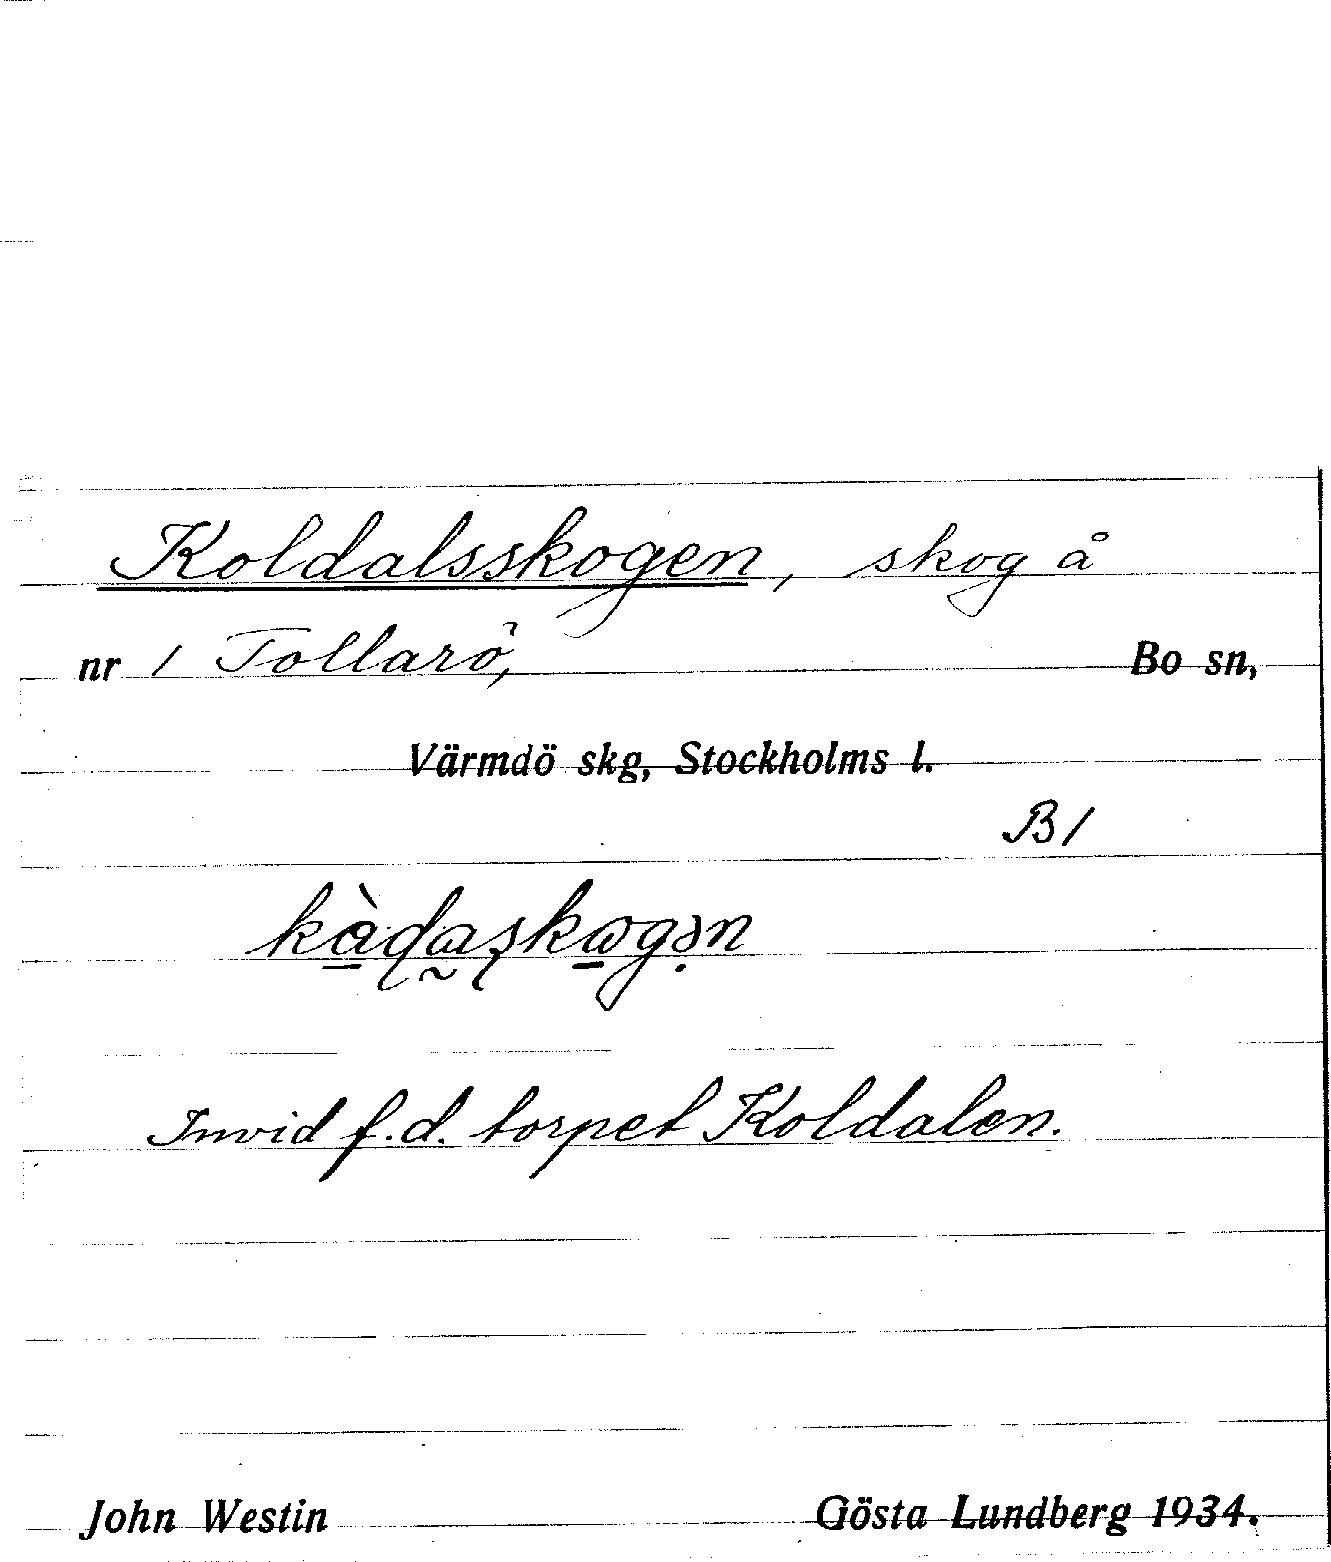 Koldalsskogen, skog å
nr 1 Tollarö, Bo sn,
Värmdö skg, Stockholms l.
B1
Invid f.d. torpet Koldalen.
John Westin Gösta Lundberg 1934.